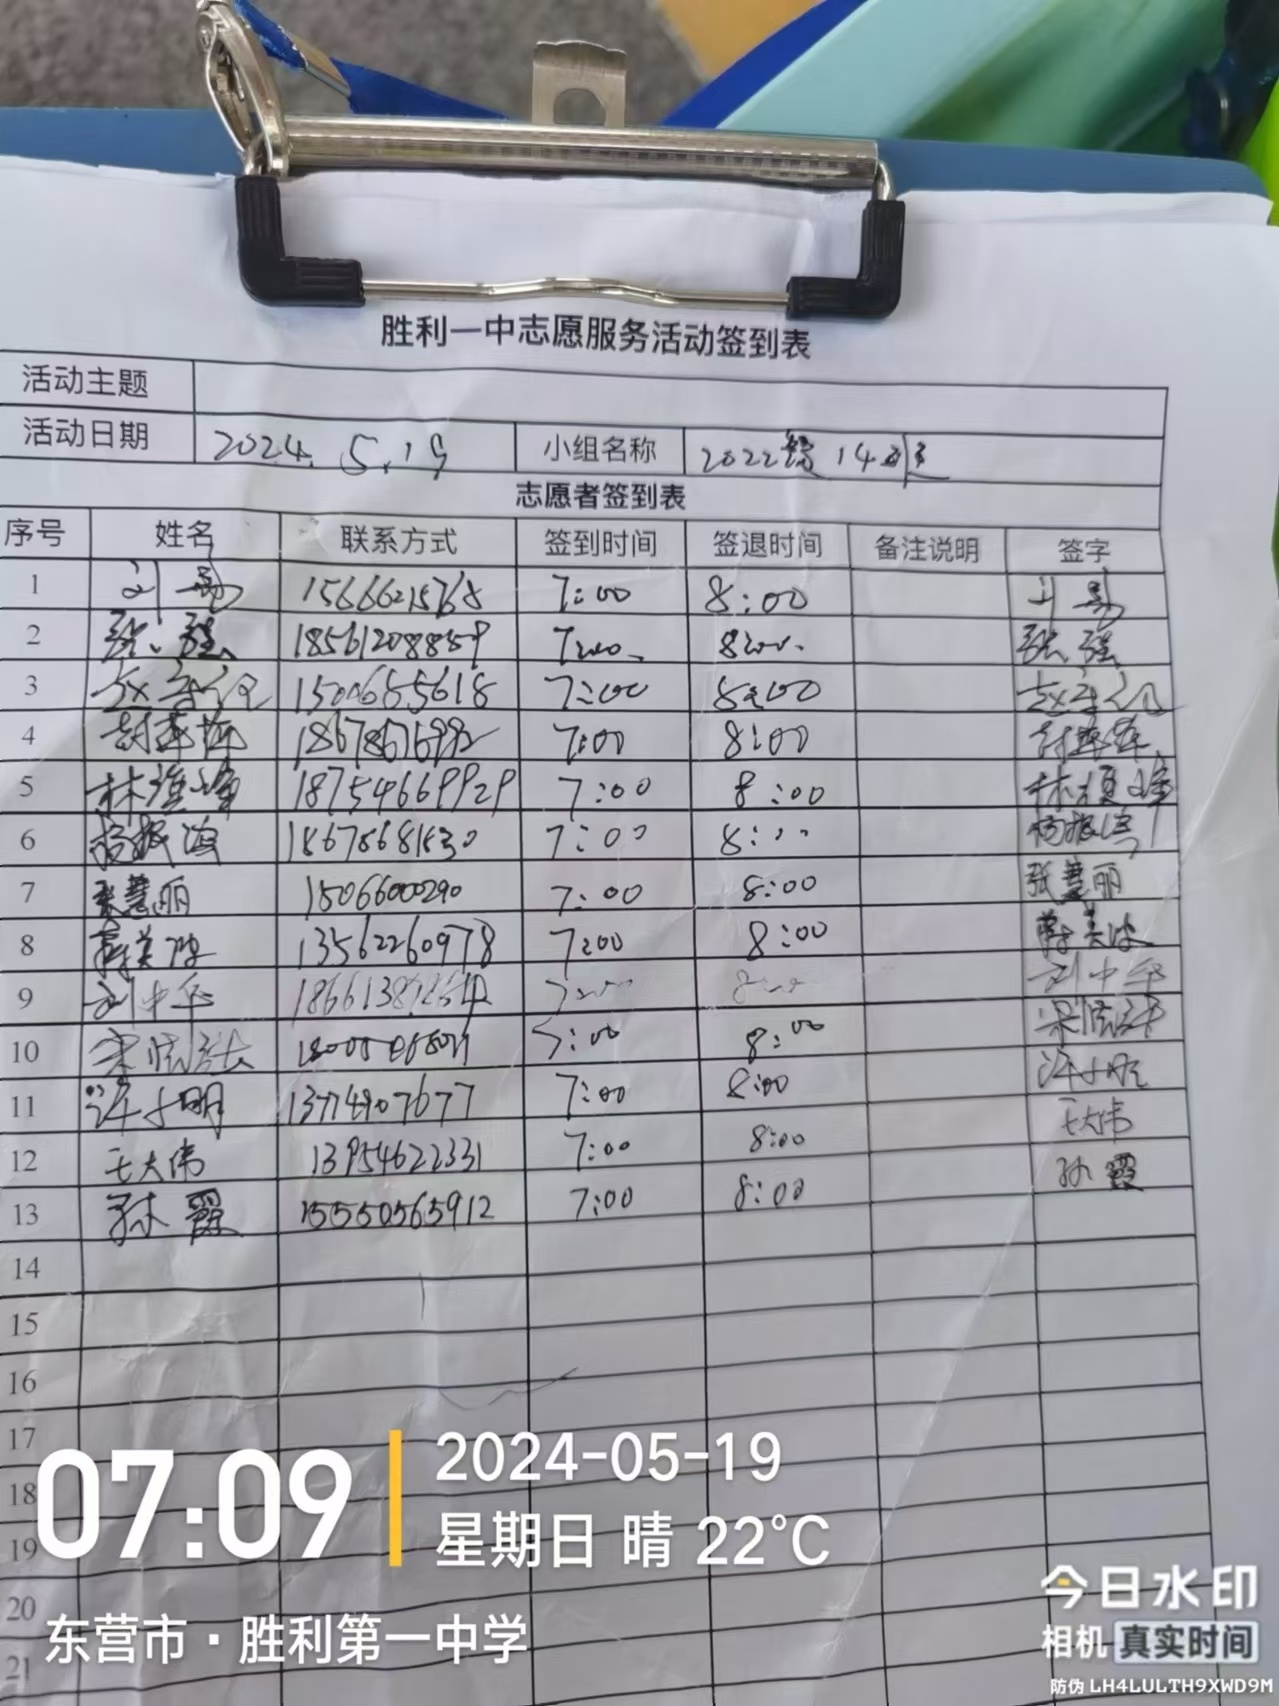 胜利一中志愿服务活动签到表
活动主题
活动日期 2024.5.19 小组名称 2022级14班
志愿者签到表
序号 姓名 联系方式 签到时间 签退时间 备注说明 签字
1 7:00 8:00
2 18561208859 7:00 8:00
3 15006855618 7:00 8:00
4 18678676992 7:00 8:00
5 18754669929 7:00 8:00
6 杨振海 18678681830 7:00 8:00
7 张慧丽 15066000290 7:00 8:00 张慧丽
8 13562260978 7:00 8:00
9 刘中华 7:00 8:00 刘中华
10 7:00 8:00
11 许小明 7:00 8:00 许小明
12 王大伟 13954622331 7:00 8:00 王大伟
13 孙霞 15550565912 7:00 8:00 孙霞
14
15
16
17
18
19
20
21
07:09
2024-05-19
星期日 晴 22°C
东营市·胜利第一中学
今日水印
相机 真实时间
防伪 LH4LULTH9XWD9M